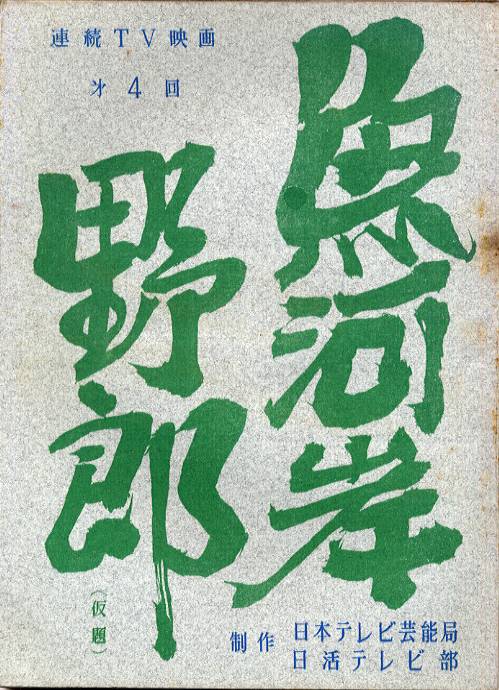 連続TV映画
才4回
魚河岸
野郎
(仮題)
制作 日本テレビ芸能局
日活テレビ部